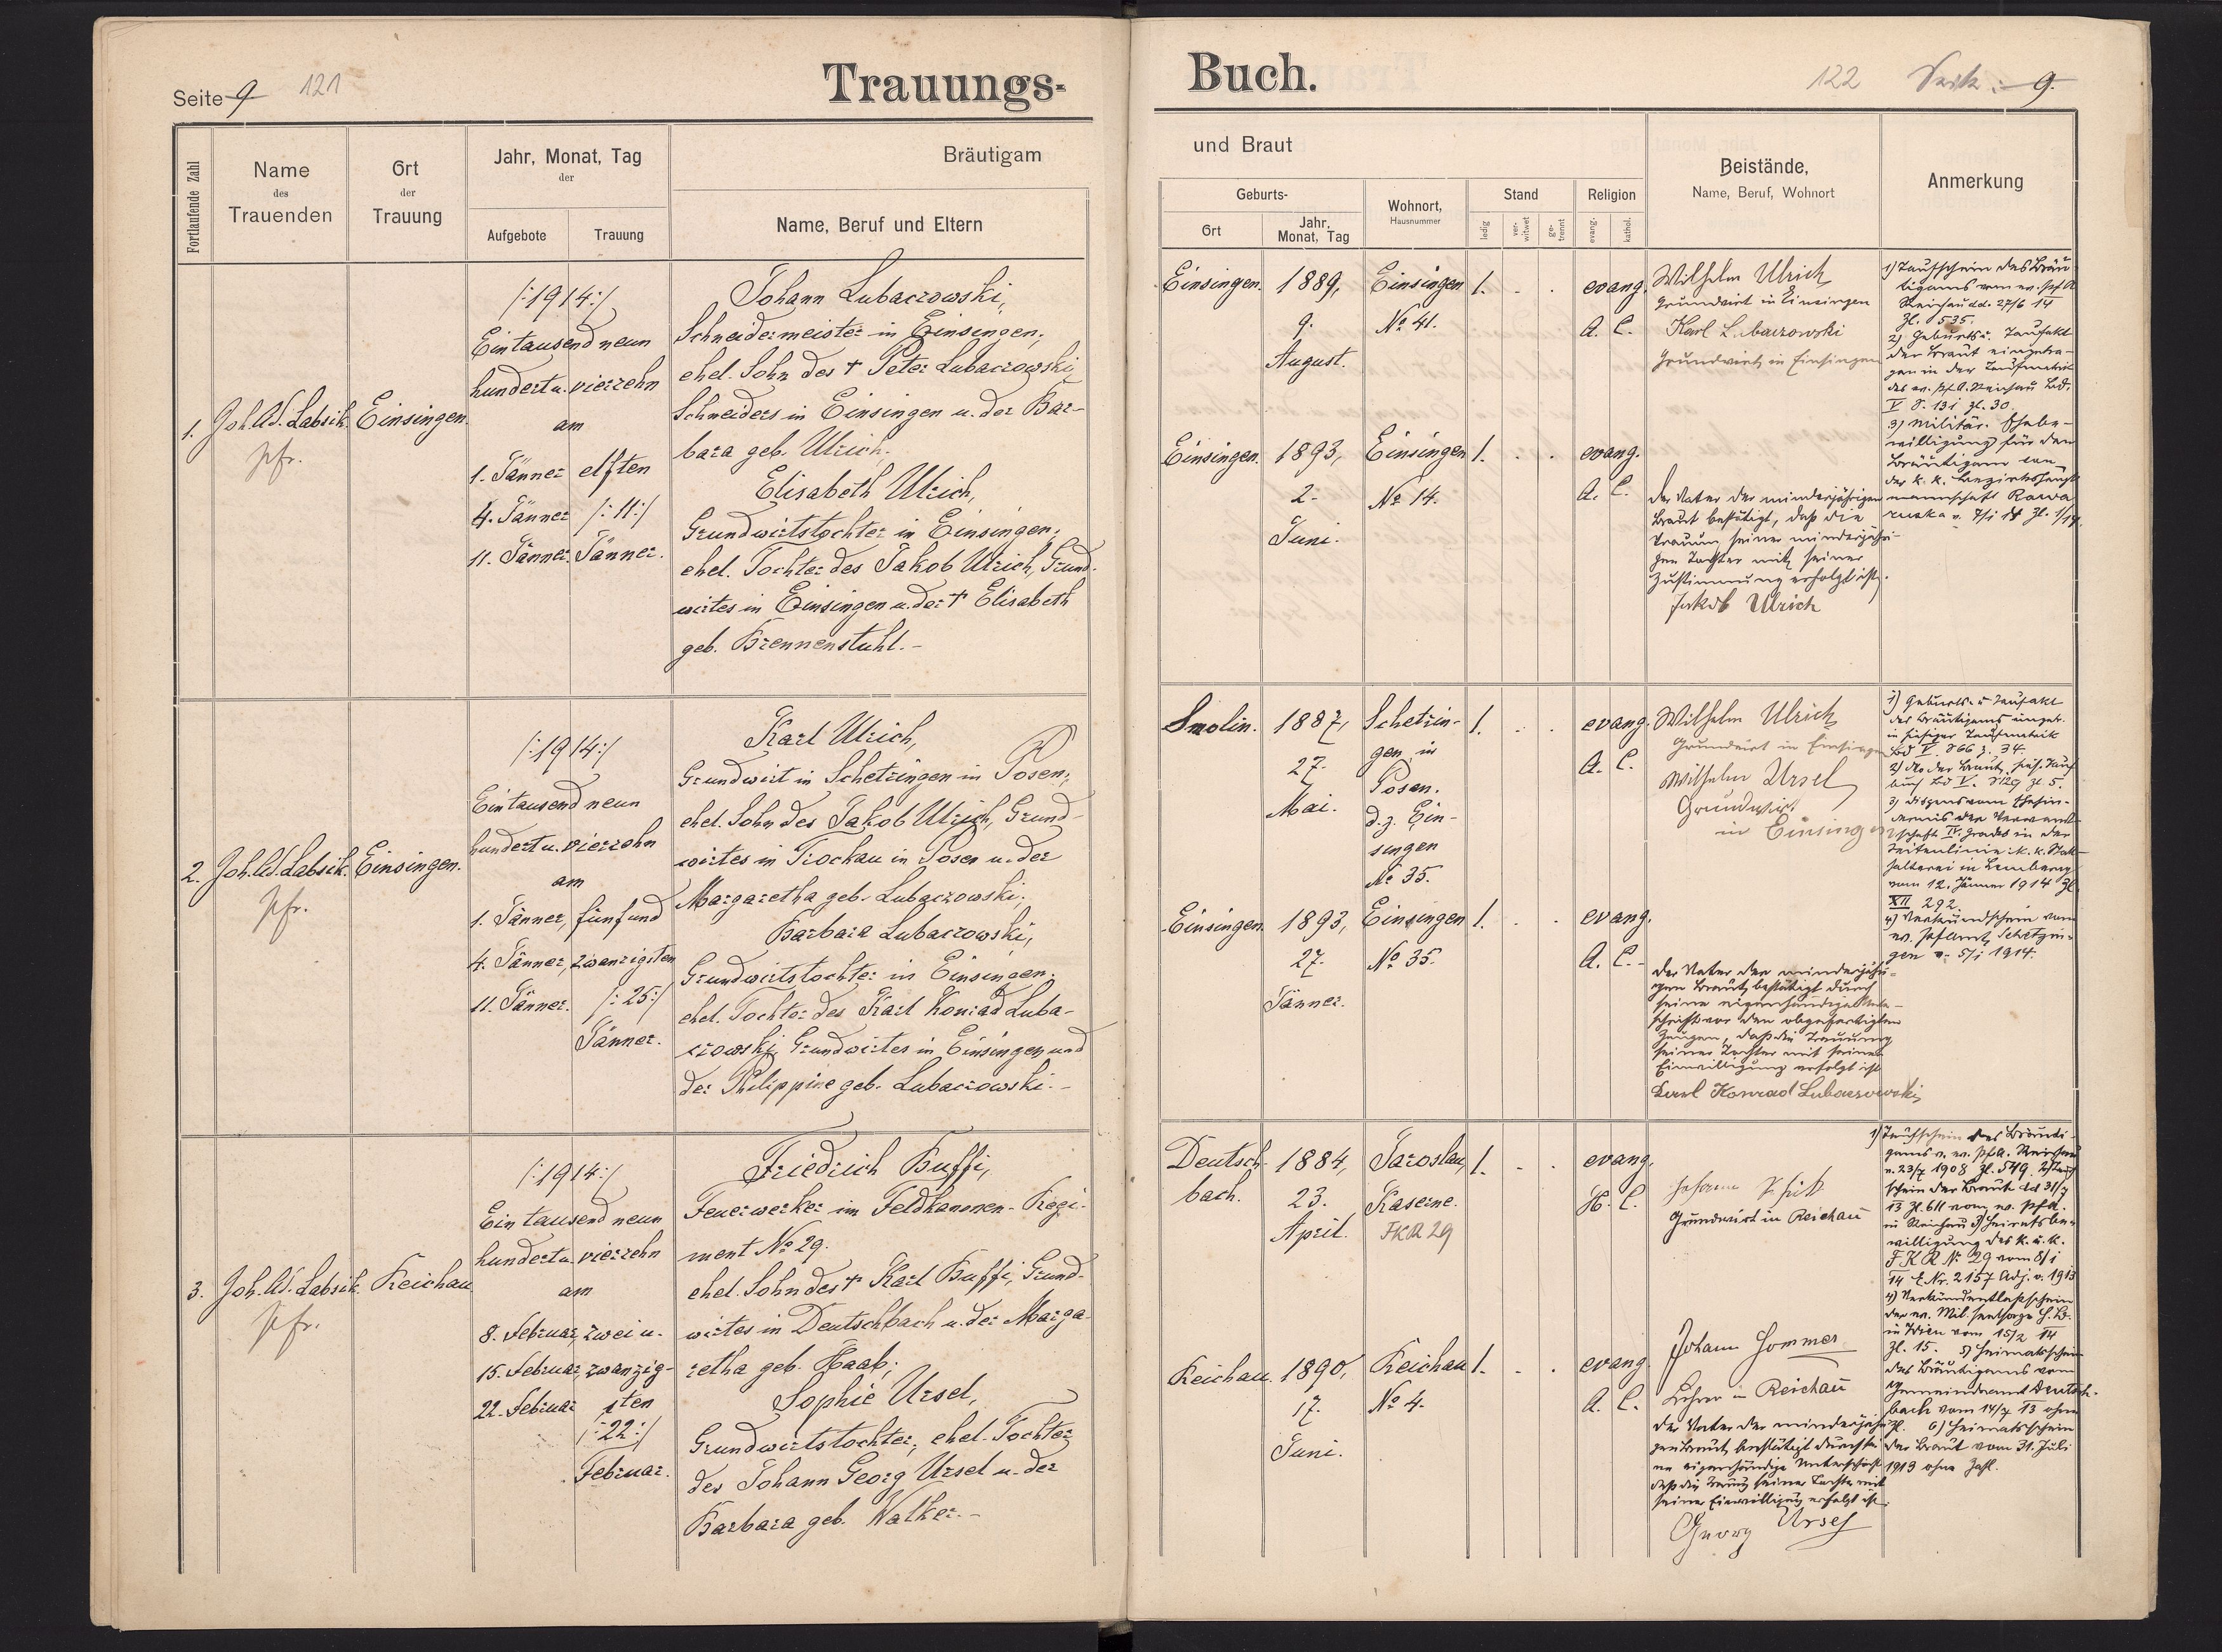 Seite 9 121
Trauungs-
Fortlaufende Zahl
Name
des
Trauenden
Ort
der
Trauung
Jahr, Monat, Tag
der
Aufgebote
Trauung
Bräutigam
Name, Beruf und Eltern
1.
Joh. Ad. Labsik.
Pfr.
Einsingen.
/:1914:/
Ein tausend neun
hundert u. vierzehn
am
1. Jänner elften
4. Jänner /:11:/
11. Jänner. Jänner.
Johann Lubaczowski,
Schneidermeister in Einsingen;
ehel. Sohn des † Peter Lubaczowski,
Schneiders in Einsingen u. der Bar-
bara geb. Ulrich.
Elisabeth Ulrich,
Grundwirtstochter in Einsingen;
ehel. Tochter des Jakob Ulrich, Grund-
wirtes in Einsingen u. der † Elisabeth
geb. Brennenstuhl.-
2.
Joh. Ad. Labsik.
Pfr.
Einsingen.
/:1914:/
Ein tausend neun
hundert u. vierzehn
am
1. Jänner, fünfund
4. Jänner, zwanzigsten
11. Jänner. /:25:/
Jänner.
Karl Ulrich,
Grundwirt in Schetzingen in Posen;
ehel. Sohn des Jakob Ulrich, Grund-
wirtes in Trochau in Posen u. der
Margaretha geb. Lubaczowski;
Barbara Lubaczowski,
Grundwirtstochter in Einsingen;
ehel. Tochter des Karl Konrad Luba-
czowski, Grundwirtes in Einsingen und
der Philippine geb. Lubaczowski.-
3.
Joh. Ad. Labsik.
Pfr.
Reichau
/:1914:/
Ein tausend neun
hundert u. vierzehn
am
8. Februar, zwei u.
15. Februar, zwanzig-
22. Februar sten
/:22:/
Februar.
Friedrich Buffi,
Feuerwerker im Feldkanonen-Regi-
ment No 29.
ehel. Sohn des † Karl Buffi, Grund-
wirtes in Deutschbach u. der Marga-
retha geb. Haab;
Sophie Ursel,
Grundwirtstochter, ehel. Tochter
des Johann Georg Ursel u. der
Barbara geb. Walker.-
Buch.
122 Seite: 9.
und Braut
Geburts-
Ort
Jahr,
Monat, Tag
Wohnort,
Hausnummer
Stand
ledig
ver-
witwet
ge-
trennt
Religion
evang.
kathol.
Beistände,
Name, Beruf, Wohnort
Anmerkung
Einsingen. 1889, Einsingen 1. . . evang.
9. No 41. A. C.
August.
Einsingen. 1893, Einsingen 1. . . evang.
2. No 14. A. C.
Juni.
Wilhelm Ulrich
Grundwirt in Einsingen
Karl Lubaczowski
Grundwirt in Einsingen
Der Vater der minderjährigen
Braut bestätigt, daß die
Trauung seiner minderjähri-
gen Tochter mit seiner
Zustimmung erfolgt ist.
Jakob Ulrich
1) Taufschein des Bräu-
tigams vom ev. Pf. A.
Reichau dd. 27/6 14
Zl. 535.
2) Geburts u. Taufakt
der Braut eingetra-
gen in der Taufmatrik
des ev. Pf. A. Reichau Bd.
V S. 131 Zl. 30.
3) Militär. Ehebe-
willigung für den
Bräutigam von
der k. k. Bezirkshaupt
mannschaft Rawa
ruska v. 7/1 14 Zl. 1/14.
Smolin. 1887, Schetzin- 1. . . evang.
27. gen in A. C.
Mai. Posen.
d. z. Ein-
singen
No 35.
Einsingen. 1893, Einsingen 1. . . evang.
27. No 35. A. C.-
Jänner.
Wilhelm Ulrich
Grundwirt in Einsingen
Wilhelm Ursel
Grundwirt
in Einsingen
Der Vater der minderjähri-
gen Braut bestätigt durch
seine eigenhändige Unter-
schrift vor den obgefertigten
Zeugen, daß die Trauung
seiner Tochter mit seiner
Einwilligung erfolgt ist
Karl Konrad Lubaczowski
1) Geburts- u Taufakt
des Bräutigams eingetr.
in hiesiger Taufmatrik
Bd V. S 66 Z. 34.
2) der Braut, Tauf
buch Bd V. S 129 Zl 5.
3) Dispens vom Ehehin-
dernis der Verwandt-
schaft IV. Grades in der
Seitenlinie: k. k. Statt-
halterei in Lemberg
vom 12. Jänner 1914 Zl.
XII 292.
4) Verkündschein vom
ev. Pfarramt Schetzin-
gen v. 5/1 1914.
Deutsch- 1884, Jaroslau, 1. . . evang.
bach. 23. Kaserne. H. C.
April. FKR 29
Reichau. 1890, Reichau 1. . . evang.
17. No 4. A. C.
Juni.
Johann
Grundwirt in Reichau
Johann Sommer
Lehrer in Reichau
Der Vater der minderjähri-
gen Braut, bestätigt durch sei
ne eigenhändige Unterschrift
daß die Trauung seiner Tochter mit
seiner Einwilligung erfolgt ist.
Georg Ursel
1) Taufschein des Bräuti-
gams v. ev. Pf. A. Reichau
v. 23/7 1908 Zl. 549. 2) Tauf
schein der Braut dd 31/7
13 Zl. 611 vom ev. Pf. A.
in Reichau 3) Heiratsbe-
willigung des k. u. k.
F K R No 29 vom 8/1
14 E. Nr. 2157 Adj. v. 1913
4) Verkündentlaßschein
der ev. Mil. Seelsorge H. B.
in Wien vom 15/2 14
Zl. 15. 5) Heimatschein
des Bräutigams vom
Gemeindeamt Deutsch-
bach vom 14/7 13 ohne
Zl. 6) Heimatschein
der Braut vom 31. Juli
1913 ohne Zahl.